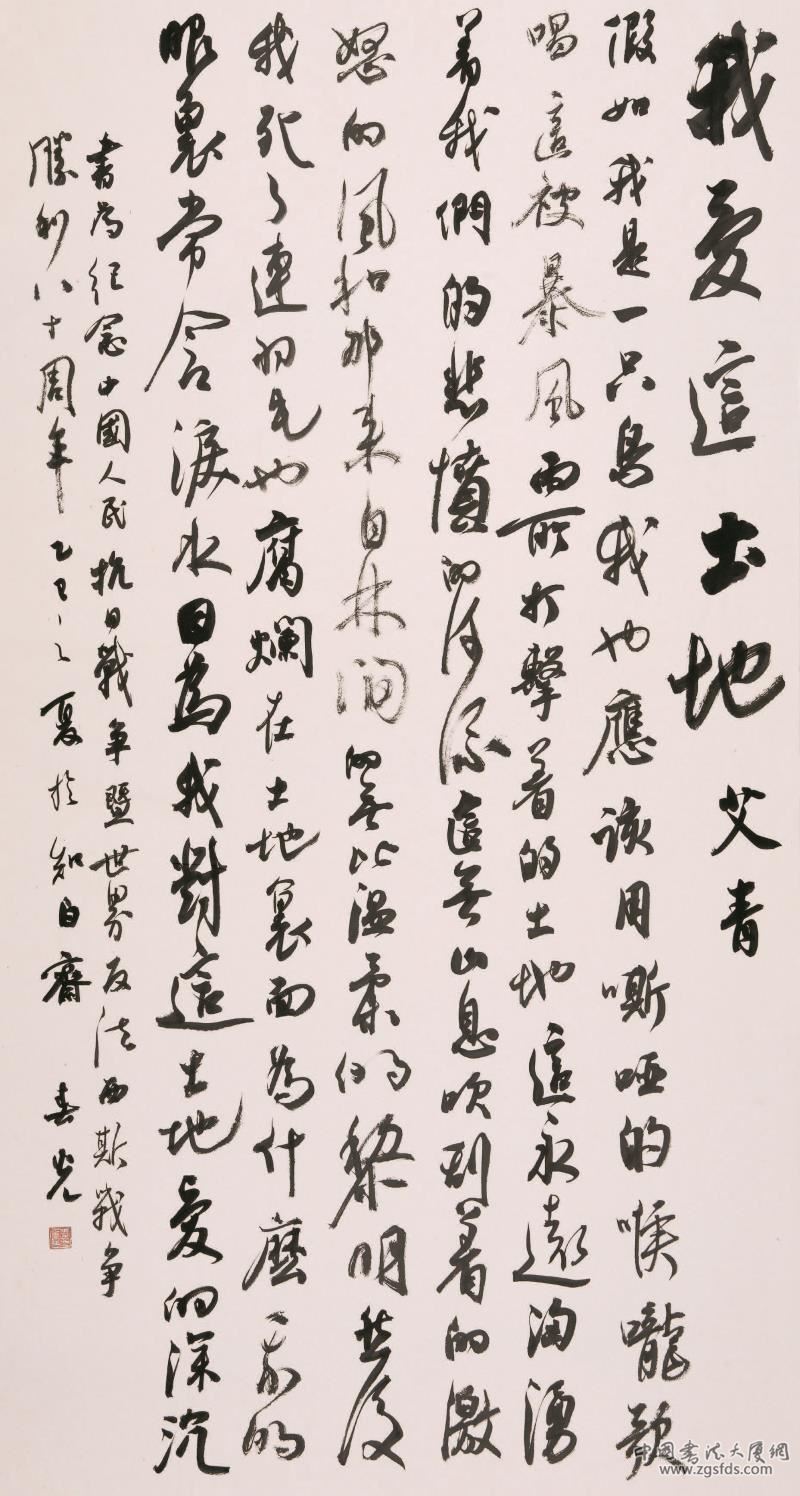 我愛這土地 艾青
假如我是一只鳥我也應該用嘶啞的喉嚨歌
唱這被暴風雨所打擊着的土地這永遠洶湧
着我們的悲憤的河流這無止息吹刮着的激
怒的風和那来自林間的無比温柔的黎明然後
我死了連羽毛也腐爛在土地裏面為什麽我的
眼裏常含淚水因為我對這土地愛的深沉
書為紀念中國人民抗日戰争暨世界反法西斯戰争
勝利八十周年乙巳之夏於知白齋 春光
中国書法大廈網
www.zgsfds.com